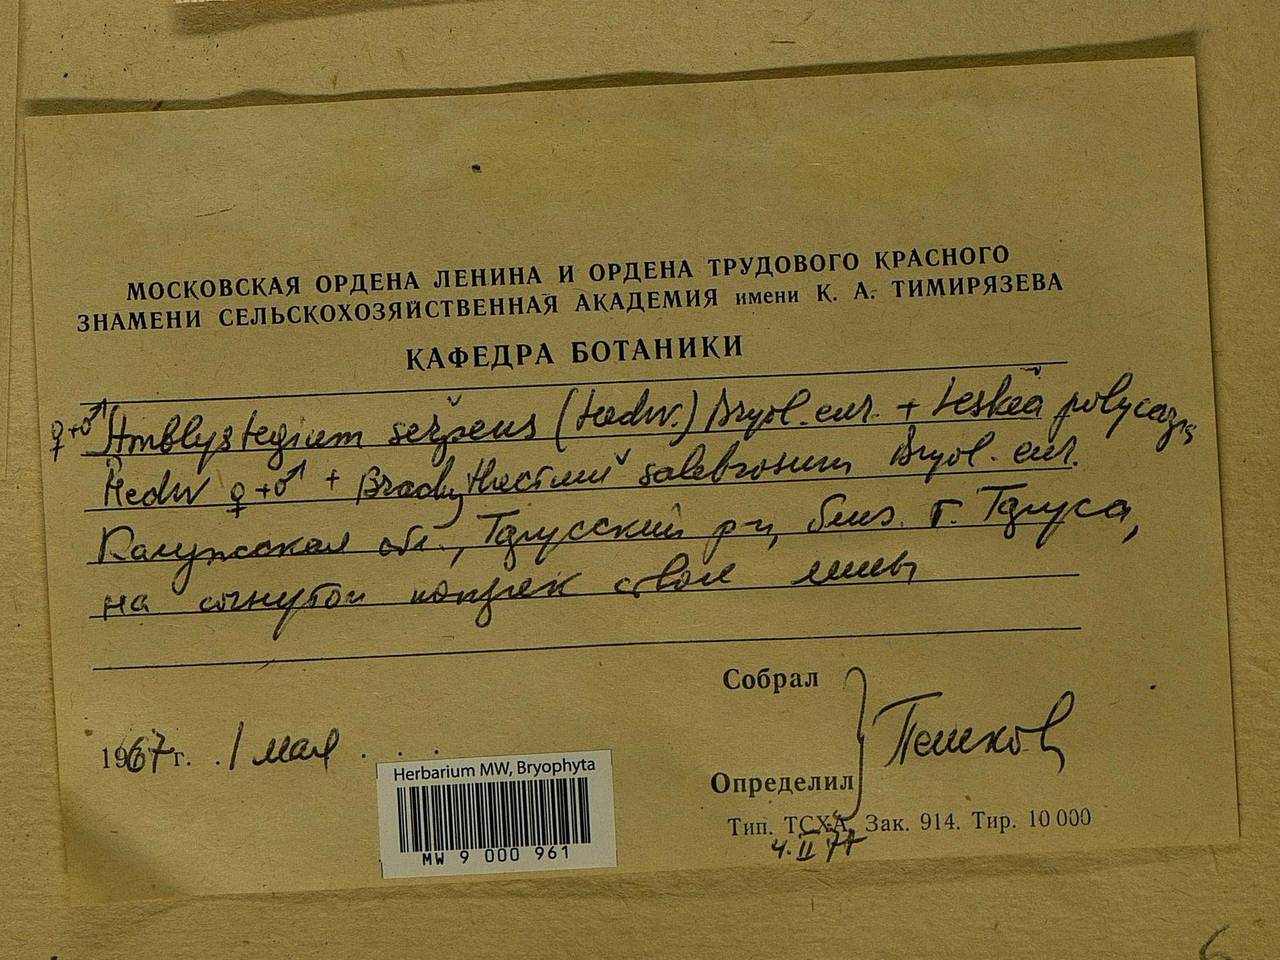 МОСКОВСКАЯ ОРДЕНА ЛЕНИНА И ОРДЕНА ТРУДОВОГО КРАСНОГО
ЗНАМЕНИ СЕЛЬСКОХОЗЯЙСТВЕННАЯ АКАДЕМИЯ имени К. А. ТИМИРЯЗЕВА
КАФЕДРА БОТАНИКИ
♀+♂ Amblystegium serpens (Hedw.) Bryol. eur. + Leskea polycarpa
Hedw ♀+♂ + Brachythecium salebrosum Bryol. eur.
Калужская обл., Тарусский р-н, близ. г. Таруса,
на согнутой ствол ивы
Собрал
1967 г. 1 мая
Пешков
Определил
Тип. ТСХА, Зак. 914. Тир. 10 000
4. II 77
Herbarium MW, Bryophyta
MW 9 000 961